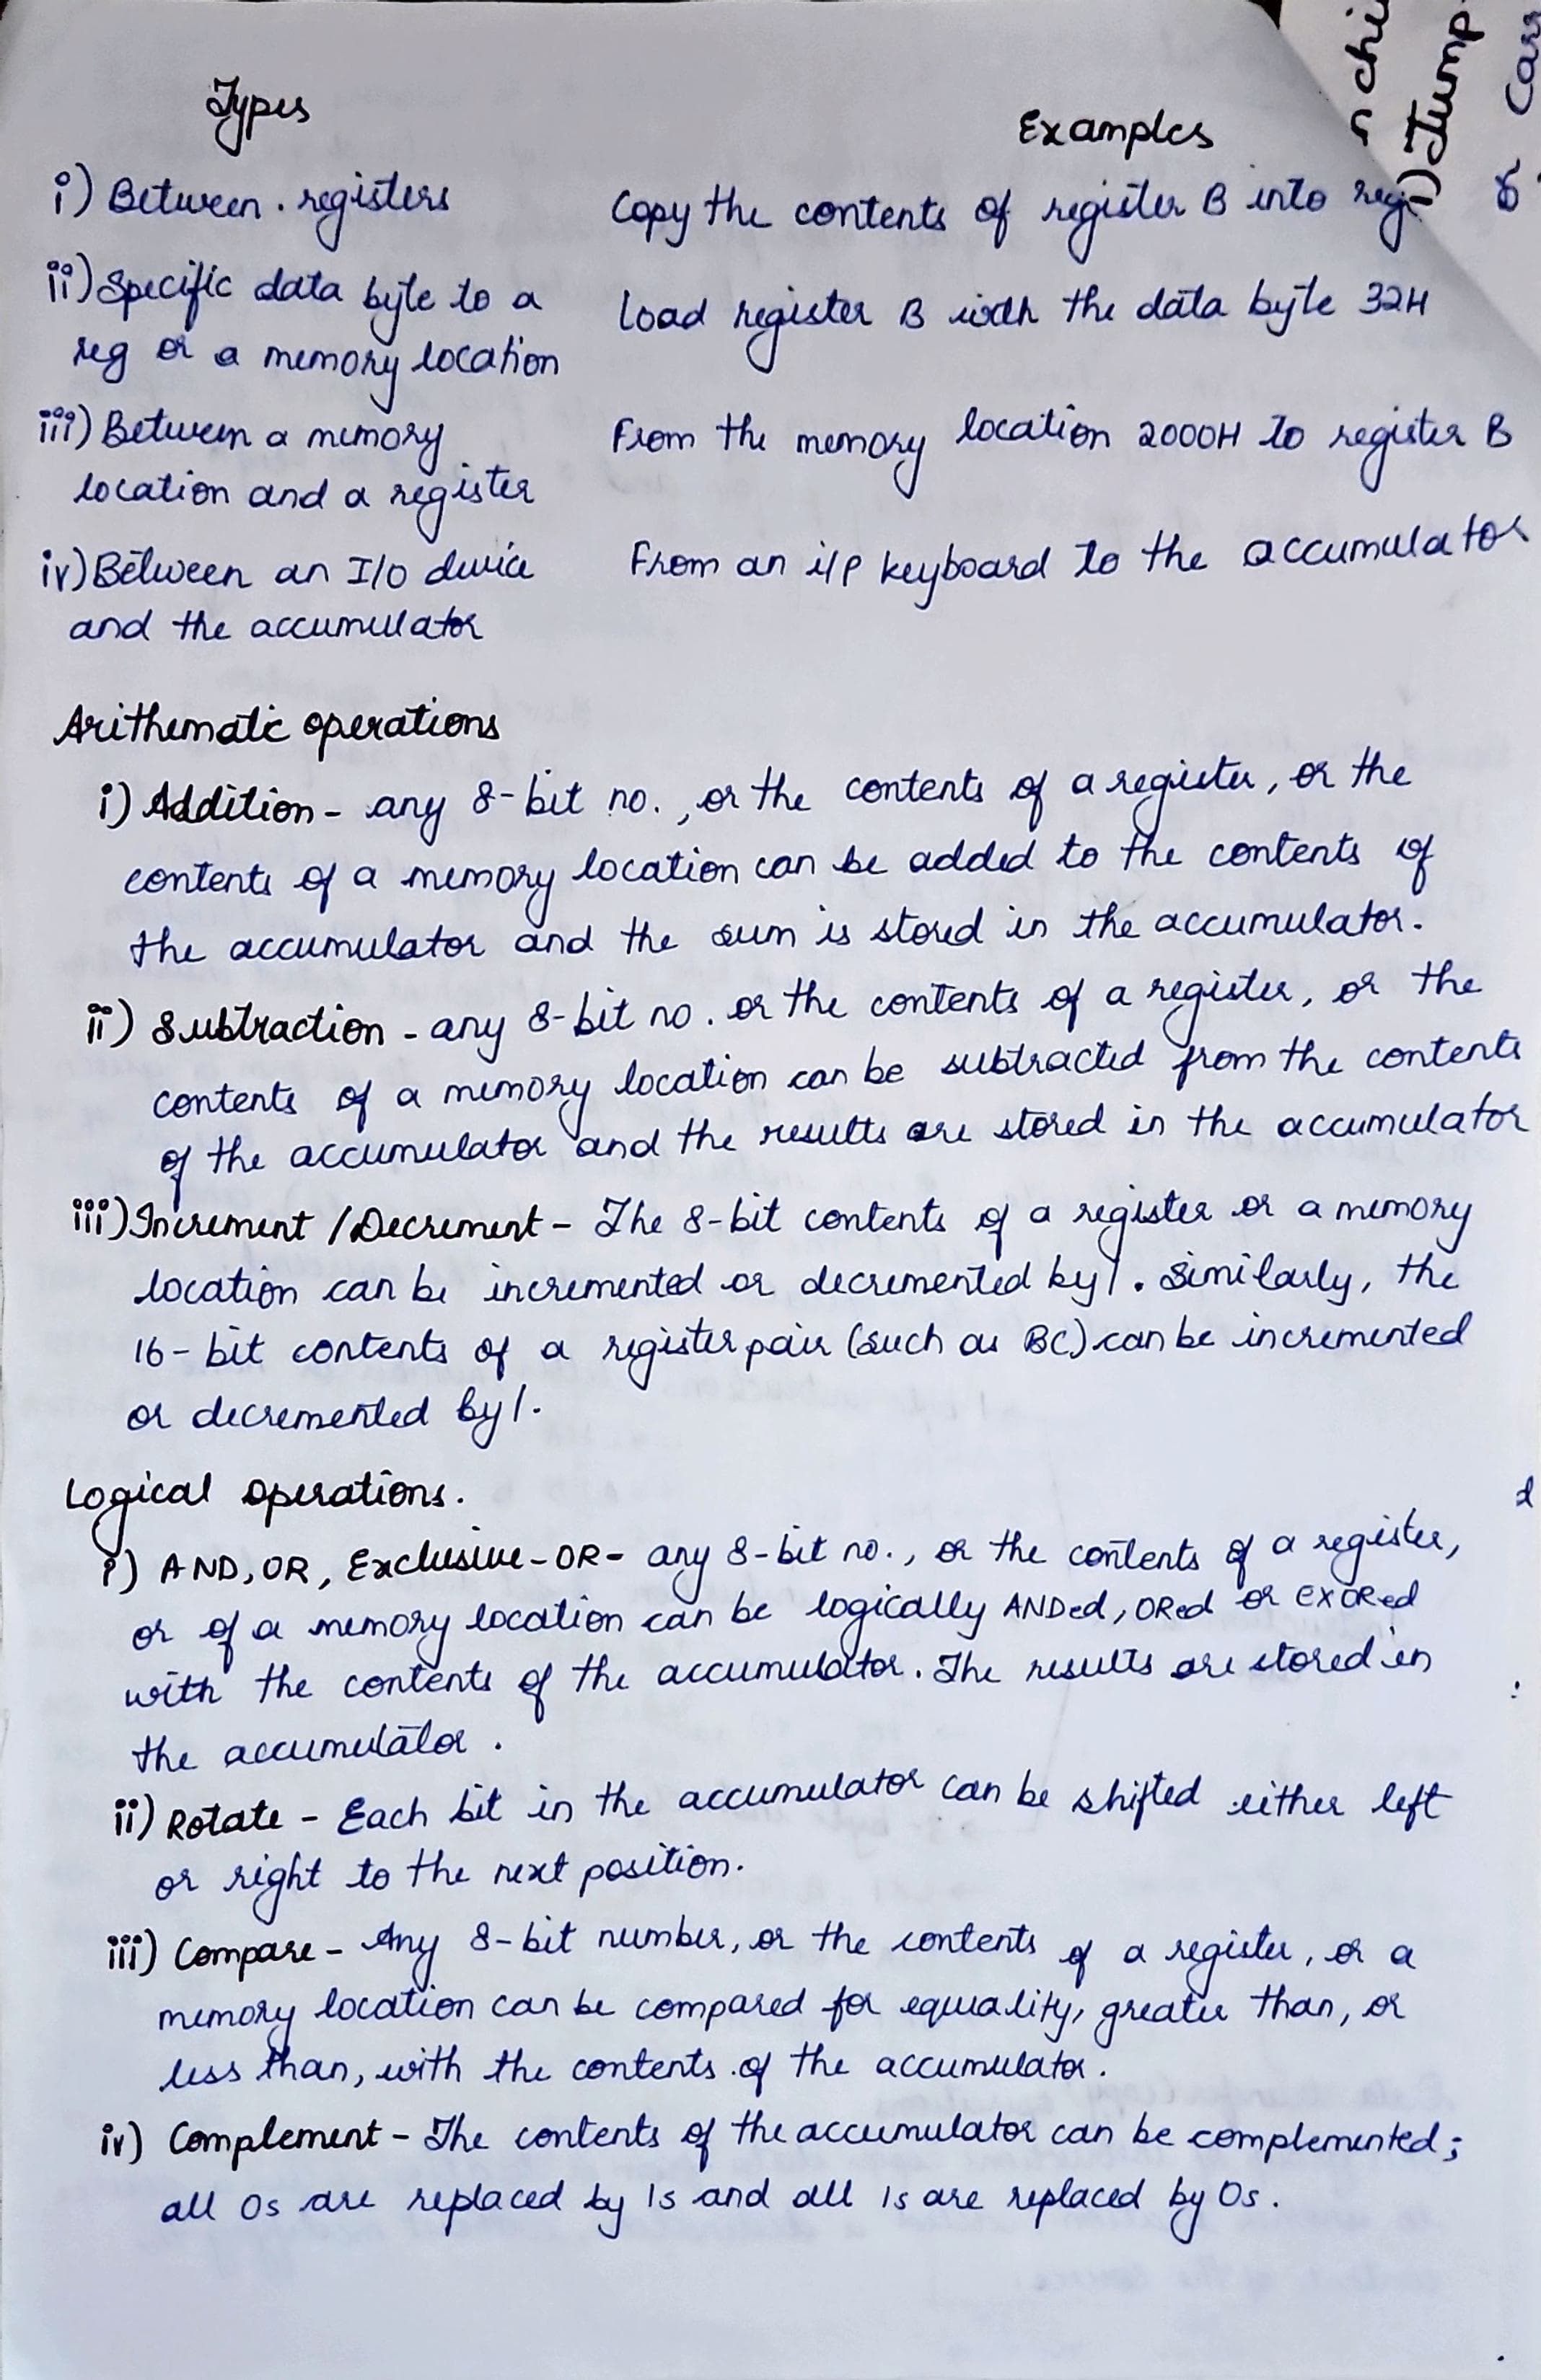 Types
Examples
i) Between registers Copy the contents of register B into reg
ii) Specific data byte to a Load register B with the data byte 32H
reg or a memory location
iii) Between a memory From the memory location 2000H to register B
location and a register
iv) Between an I/O device From an i/p keyboard to the accumulator
and the accumulator
Arithematic operations
i) Addition - any 8-bit no., or the contents of a register, or the
contents of a memory location can be added to the contents of
the accumulator and the sum is stored in the accumulator.
ii) Subtraction - any 8-bit no. or the contents of a register, or the
contents of a memory location can be subtracted from the contents
of the accumulator and the results are stored in the accumulator
iii) Increment / Decrement - The 8-bit contents of a register or a memory
location can be incremented or decremented by 1. Similarly, the
16-bit contents of a register pair (such as BC) can be incremented
or decremented by 1.
Logical operations.
i) AND, OR, Exclusive-OR - any 8-bit no., or the contents of a register,
or of a memory location can be logically ANDed, ORed or EXORed
with the contents of the accumulator. The results are stored in
the accumulator.
ii) Rotate - Each bit in the accumulator can be shifted either left
or right to the next position.
iii) Compare - Any 8-bit number, or the contents of a register, or a
memory location can be compared for equality, greater than, or
less than, with the contents of the accumulator.
iv) Complement - The contents of the accumulator can be complemented;
all 0s are replaced by 1s and all 1s are replaced by 0s.
n chi
i) Jump